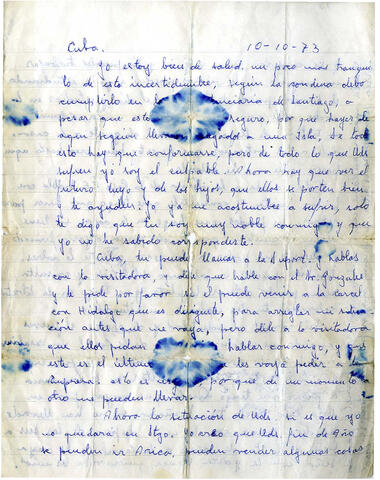 Cuba. 10-10-73
Yo estoy bien de salud, un poco más tranqui
lo de esta incertidumbre, según la condena debo
cumplirlo en la ciaria de Santiago, a
pesar que esto seguro, por que hayer de
aquí seguen llevar gados a una Isla. De todo
esto hay que conformarse, pero de todo lo que Uds
sufren yo soy el culpable. Ahora hay que ver el
futuro tuyo y de los hijos, que ellos se porten bien
y te ayuden. Yo ya me acostumbre a sufrir, solo
te digo que tu sos muy noble conmigo y que
yo no he sabido corresponderte.
Cuba, tu puedes llamar a la Hablas
con la visitadora, y dile que hable con el Sr. González
y le pide por favor si él puede venir a la carcel
con Hidalgo que es dirigente, para arreglar mi situa
ción antes que me vaya, pero dile a la visitadora
que ellos pidan hablar conmigo, y
este es el último les voy a pedir a la
Empresa. esto es por que de un momento a
otro me pueden llevar.
Ahora la situación de Uds. si es que yo
no quedara en Stgo. Yo creo que Uds. fin de año
se pueden ir Arica, pueden vender algunas cosas